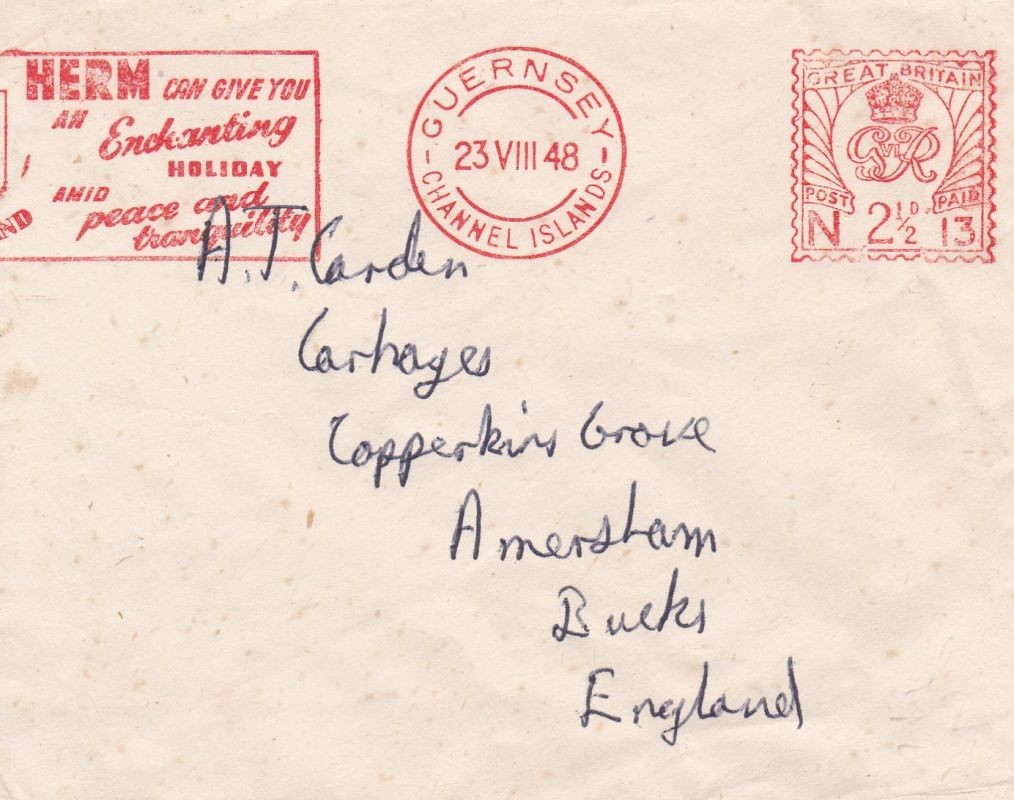 HERM CAN GIVE YOU
AN Enchanting
HOLIDAY
AMID
peace and
tranquility
GUERNSEY
23 VIII 48
CHANNEL ISLANDS
GREAT BRITAIN
G VI R
POST PAID
N 2½D. 13
A.J. Carden
Carhayes
Copperkins Grove
Amersham
Bucks
England